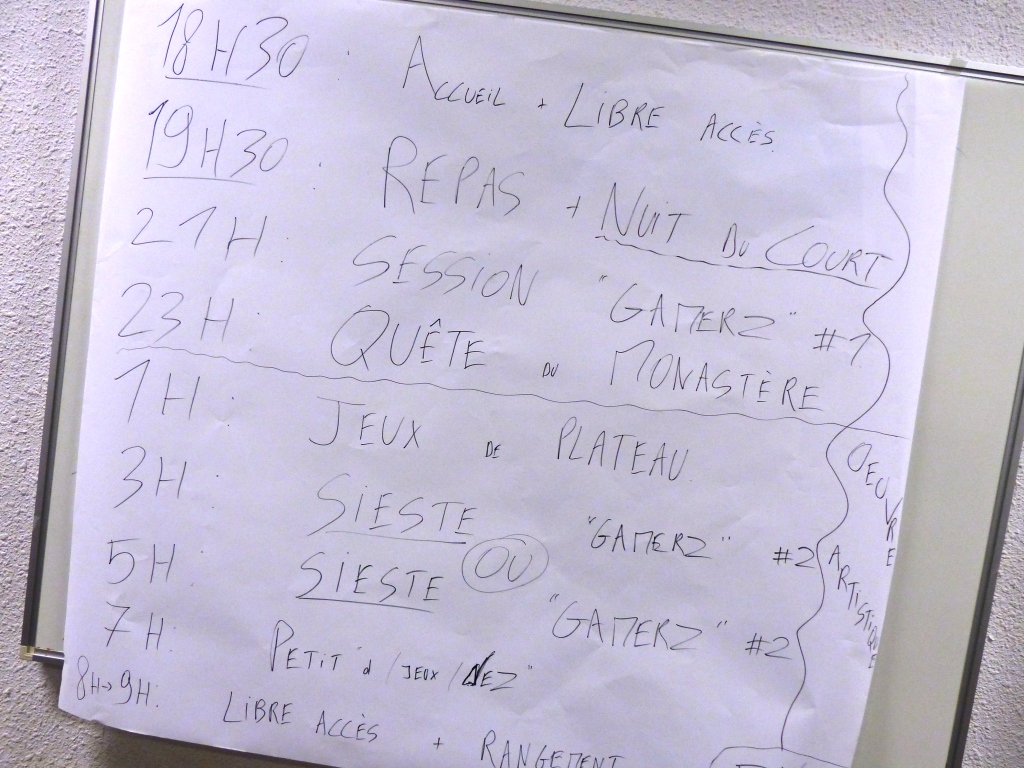 18H30 : ACCUEIL + LIBRE ACCÈS
19H30 : REPAS + NUIT DU COURT
21H : SESSION "GAMERZ" #1
23H : QUÊTE DU MONASTÈRE
1H : JEUX DE PLATEAU
3H : SIESTE "GAMERZ" #2
OÙ
5H : SIESTE "GAMERZ" #2
7H : PETIT "d / JEUX / NEZ"
8H→9H : LIBRE ACCÈS + RANGEMENT
OEUVRE
ARTISTIQUE